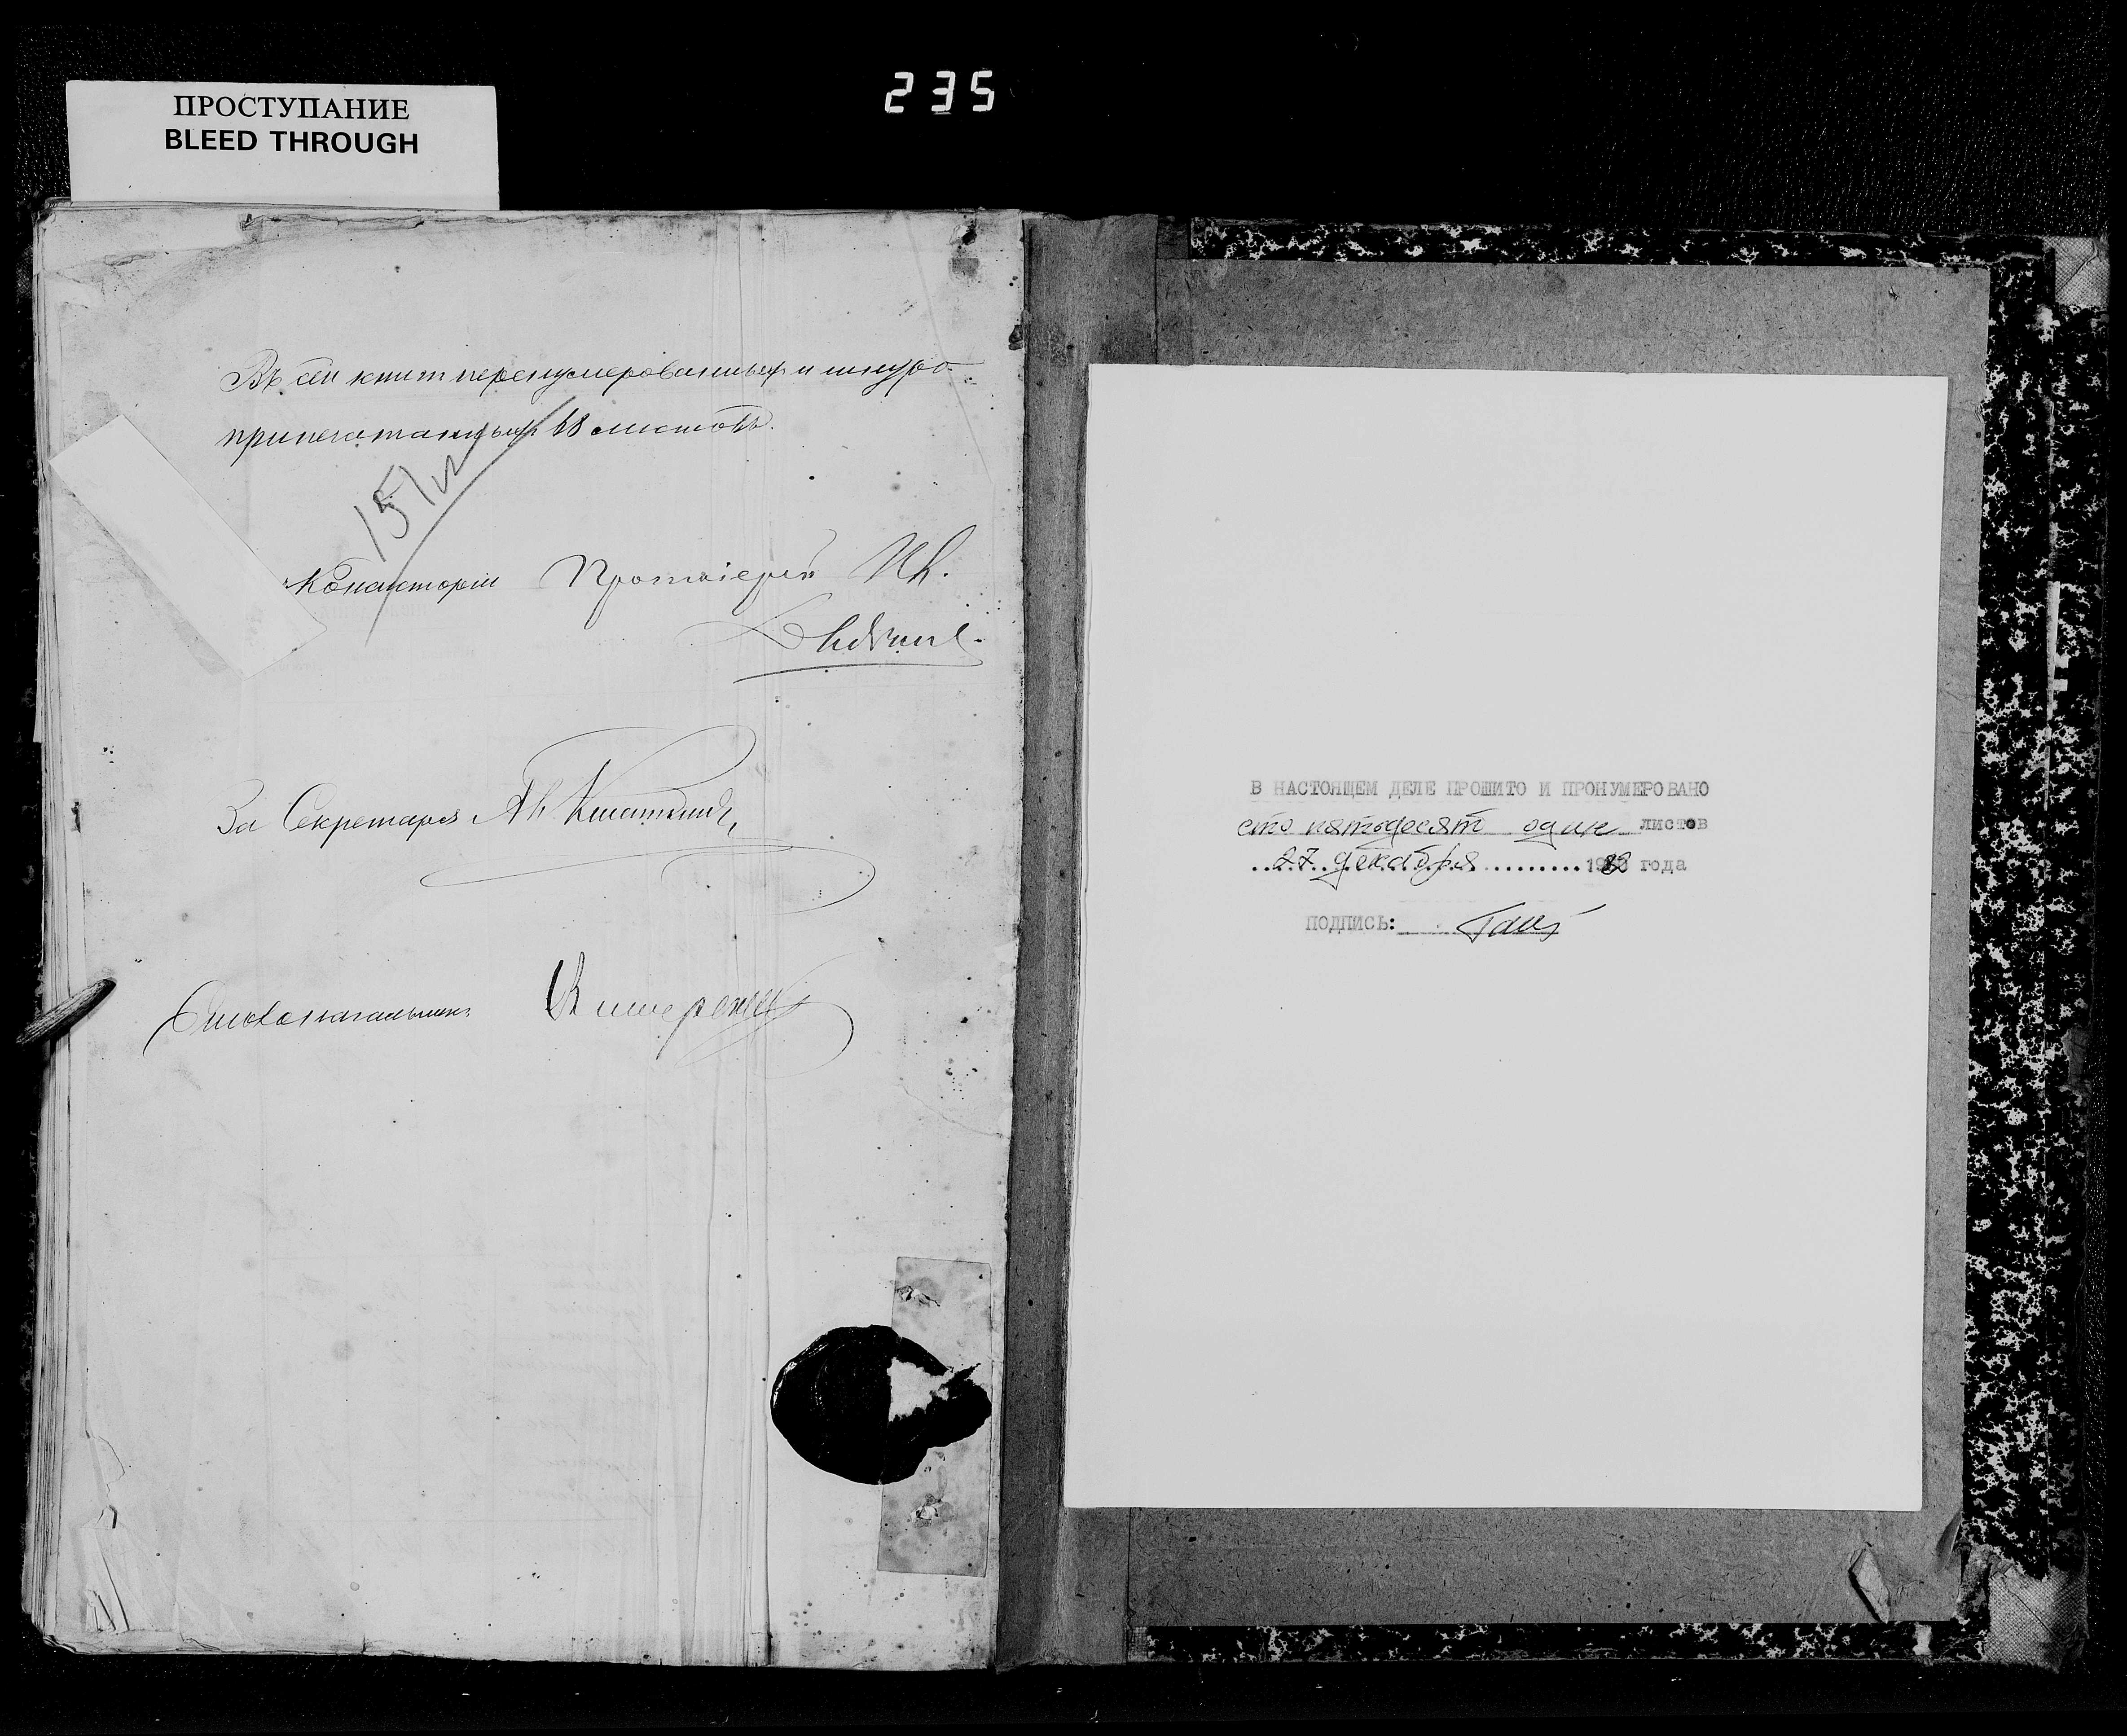 ПРОСТУПАНИЕ
BLEED THROUGH
235
Въ сей книг перенумерованныхъ и шнуро-
припечатанныхъ 68 листовъ.
151
Консисторіи Протоіерей
За Секретаря
Столоначальникъ
В НАСТОЯЩЕМ ДЕЛЕ ПРОШИТО И ПРОНУМЕРОВАНО
сто пятьдесят один листов
27 декабря года
ПОДПИСЬ: